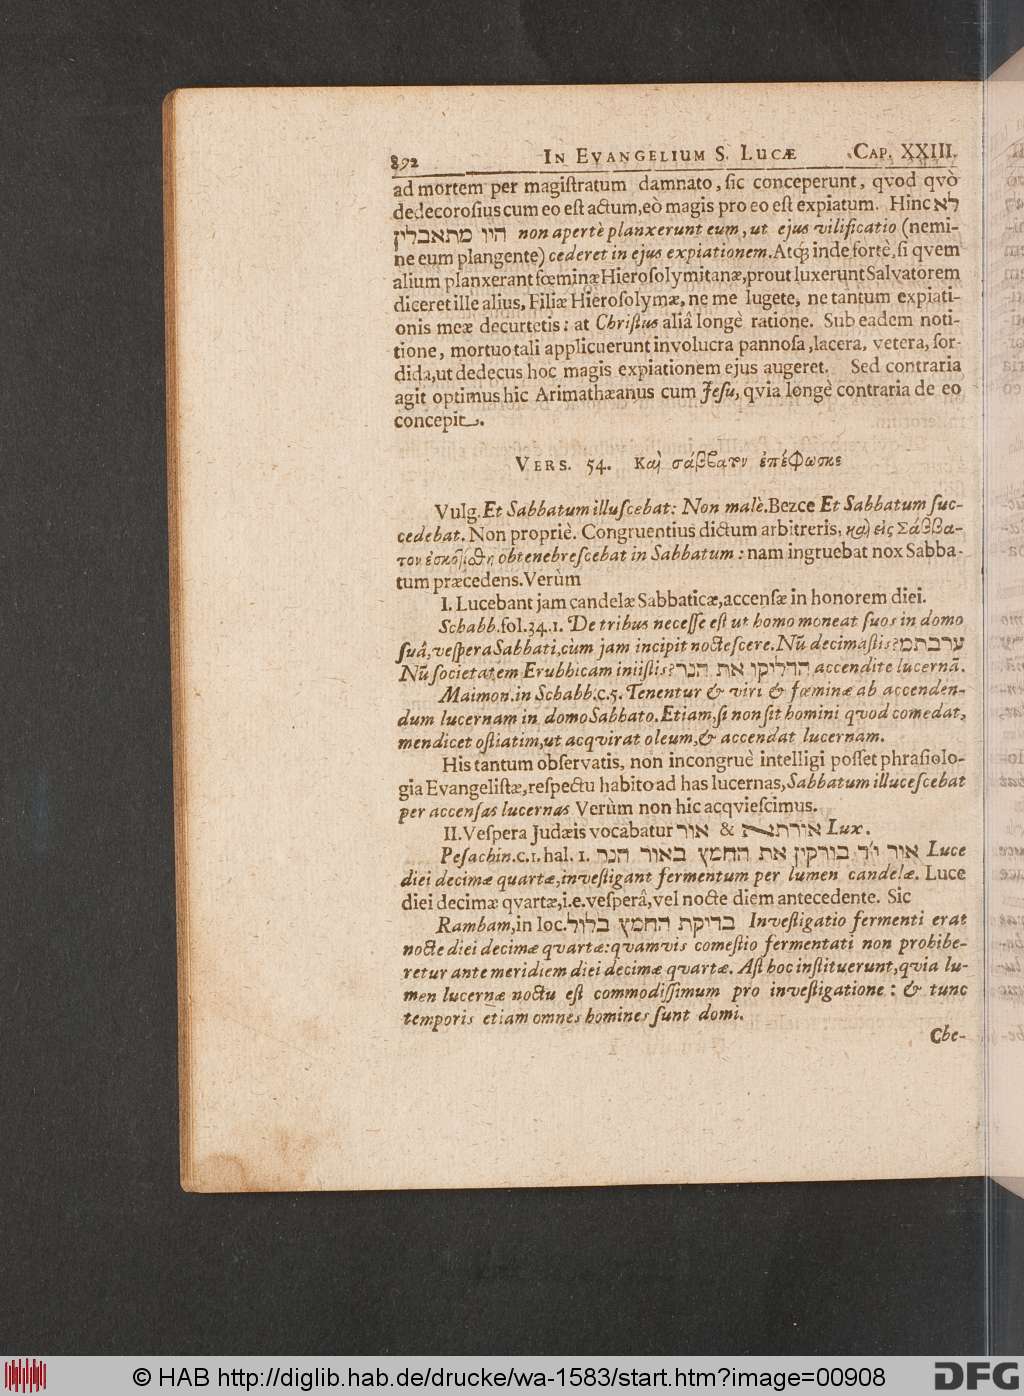 892 IN EVANGELIUM S. LUCÆ CAP. XXIII.
ad mortem per magiſtratum damnato, ſic conceperunt, qvod qvò
dedecoroſius cum eo eſt actum, eò magis pro eo eſt expiatum. Hinc לא
היו מתאבלין non apertè planxerunt eum, ut ejus vilificatio (nemi-
ne eum plangente) cederet in ejus expiationem. Atq; inde fortè, ſi qvem
alium planxerant fœminæ Hieroſolymitanæ, prout luxerunt Salvatorem
diceret ille alius, Filiæ Hieroſolymæ, ne me lugete, ne tantum expiati-
onis meæ decurtetis: at Chriſtus aliâ longè ratione. Sub eadem noti-
tione, mortuo tali applicuerunt involucra pannoſa, lacera, vetera, ſor-
dida, ut dedecus hoc magis expiationem ejus augeret. Sed contraria
agit optimus hic Arimathæanus cum Jeſu, qvia longè contraria de eo
concepit.
VERS. 54. Καὶ σάββατον ἐπέφωσκε
Vulg. Et Sabbatum illuſcebat: Non malè. Bezce Et Sabbatum ſuc-
cedebat. Non propriè. Congruentius dictum arbitreris, καὶ εἰς Σάββα-
τον ἐσκοτίσθη obtenebreſcebat in Sabbatum: nam ingruebat nox Sabba-
tum præcedens. Verùm
I. Lucebant jam candelæ Sabbaticæ, accenſæ in honorem diei.
Schabb. fol. 34. 1. De tribus neceſſe eſt ut homo moneat ſuos in domo
ſuâ, veſpera Sabbati, cùm jam incipit nocteſcere. Nū decimaſtis? ערבתם
Nū ſocietatem Erubhicam iniiſtis? הדליקו את הנר accendite lucernā.
Maimon. in Schabb. c. 5. Tenentur & viri & fœminæ ab accenden-
dum lucernam in domo Sabbato. Etiam, ſi non ſit homini qvod comedat,
mendicet oſtiatim, ut acqvirat oleum, & accendat lucernam.
His tantum obſervatis, non incongruè intelligi poſſet phraſiolo-
gia Evangeliſtæ, reſpectu habito ad has lucernas, Sabbatum illuceſcebat
per accenſas lucernas Verùm non hic acqvieſcimus.
II. Veſpera Judæis vocabatur אור & אורתא Lux.
Peſachin. c. 1. hal. 1. אור י״ד בודקין את החמץ באור הנר Luce
diei decimæ quartæ, inveſtigant fermentum per lumen candelæ. Luce
diei decimæ qvartæ, i.e. veſperâ, vel nocte diem antecedente. Sic
Rambam, in loc. בדיקת החמץ בלול Inveſtigatio fermenti erat
nocte diei decimæ quartæ: qvamvis comeſtio fermentati non prohibe-
retur ante meridiem diei decimæ quartæ. Aſt hoc inſtituerunt, qvia lu-
men lucernæ noctu eſt commodiſſimum pro inveſtigatione: & tunc
temporis etiam omnes homines ſunt domi.
Che-
© HAB http://diglib.hab.de/drucke/wa-1583/start.htm?image=00908
DFG